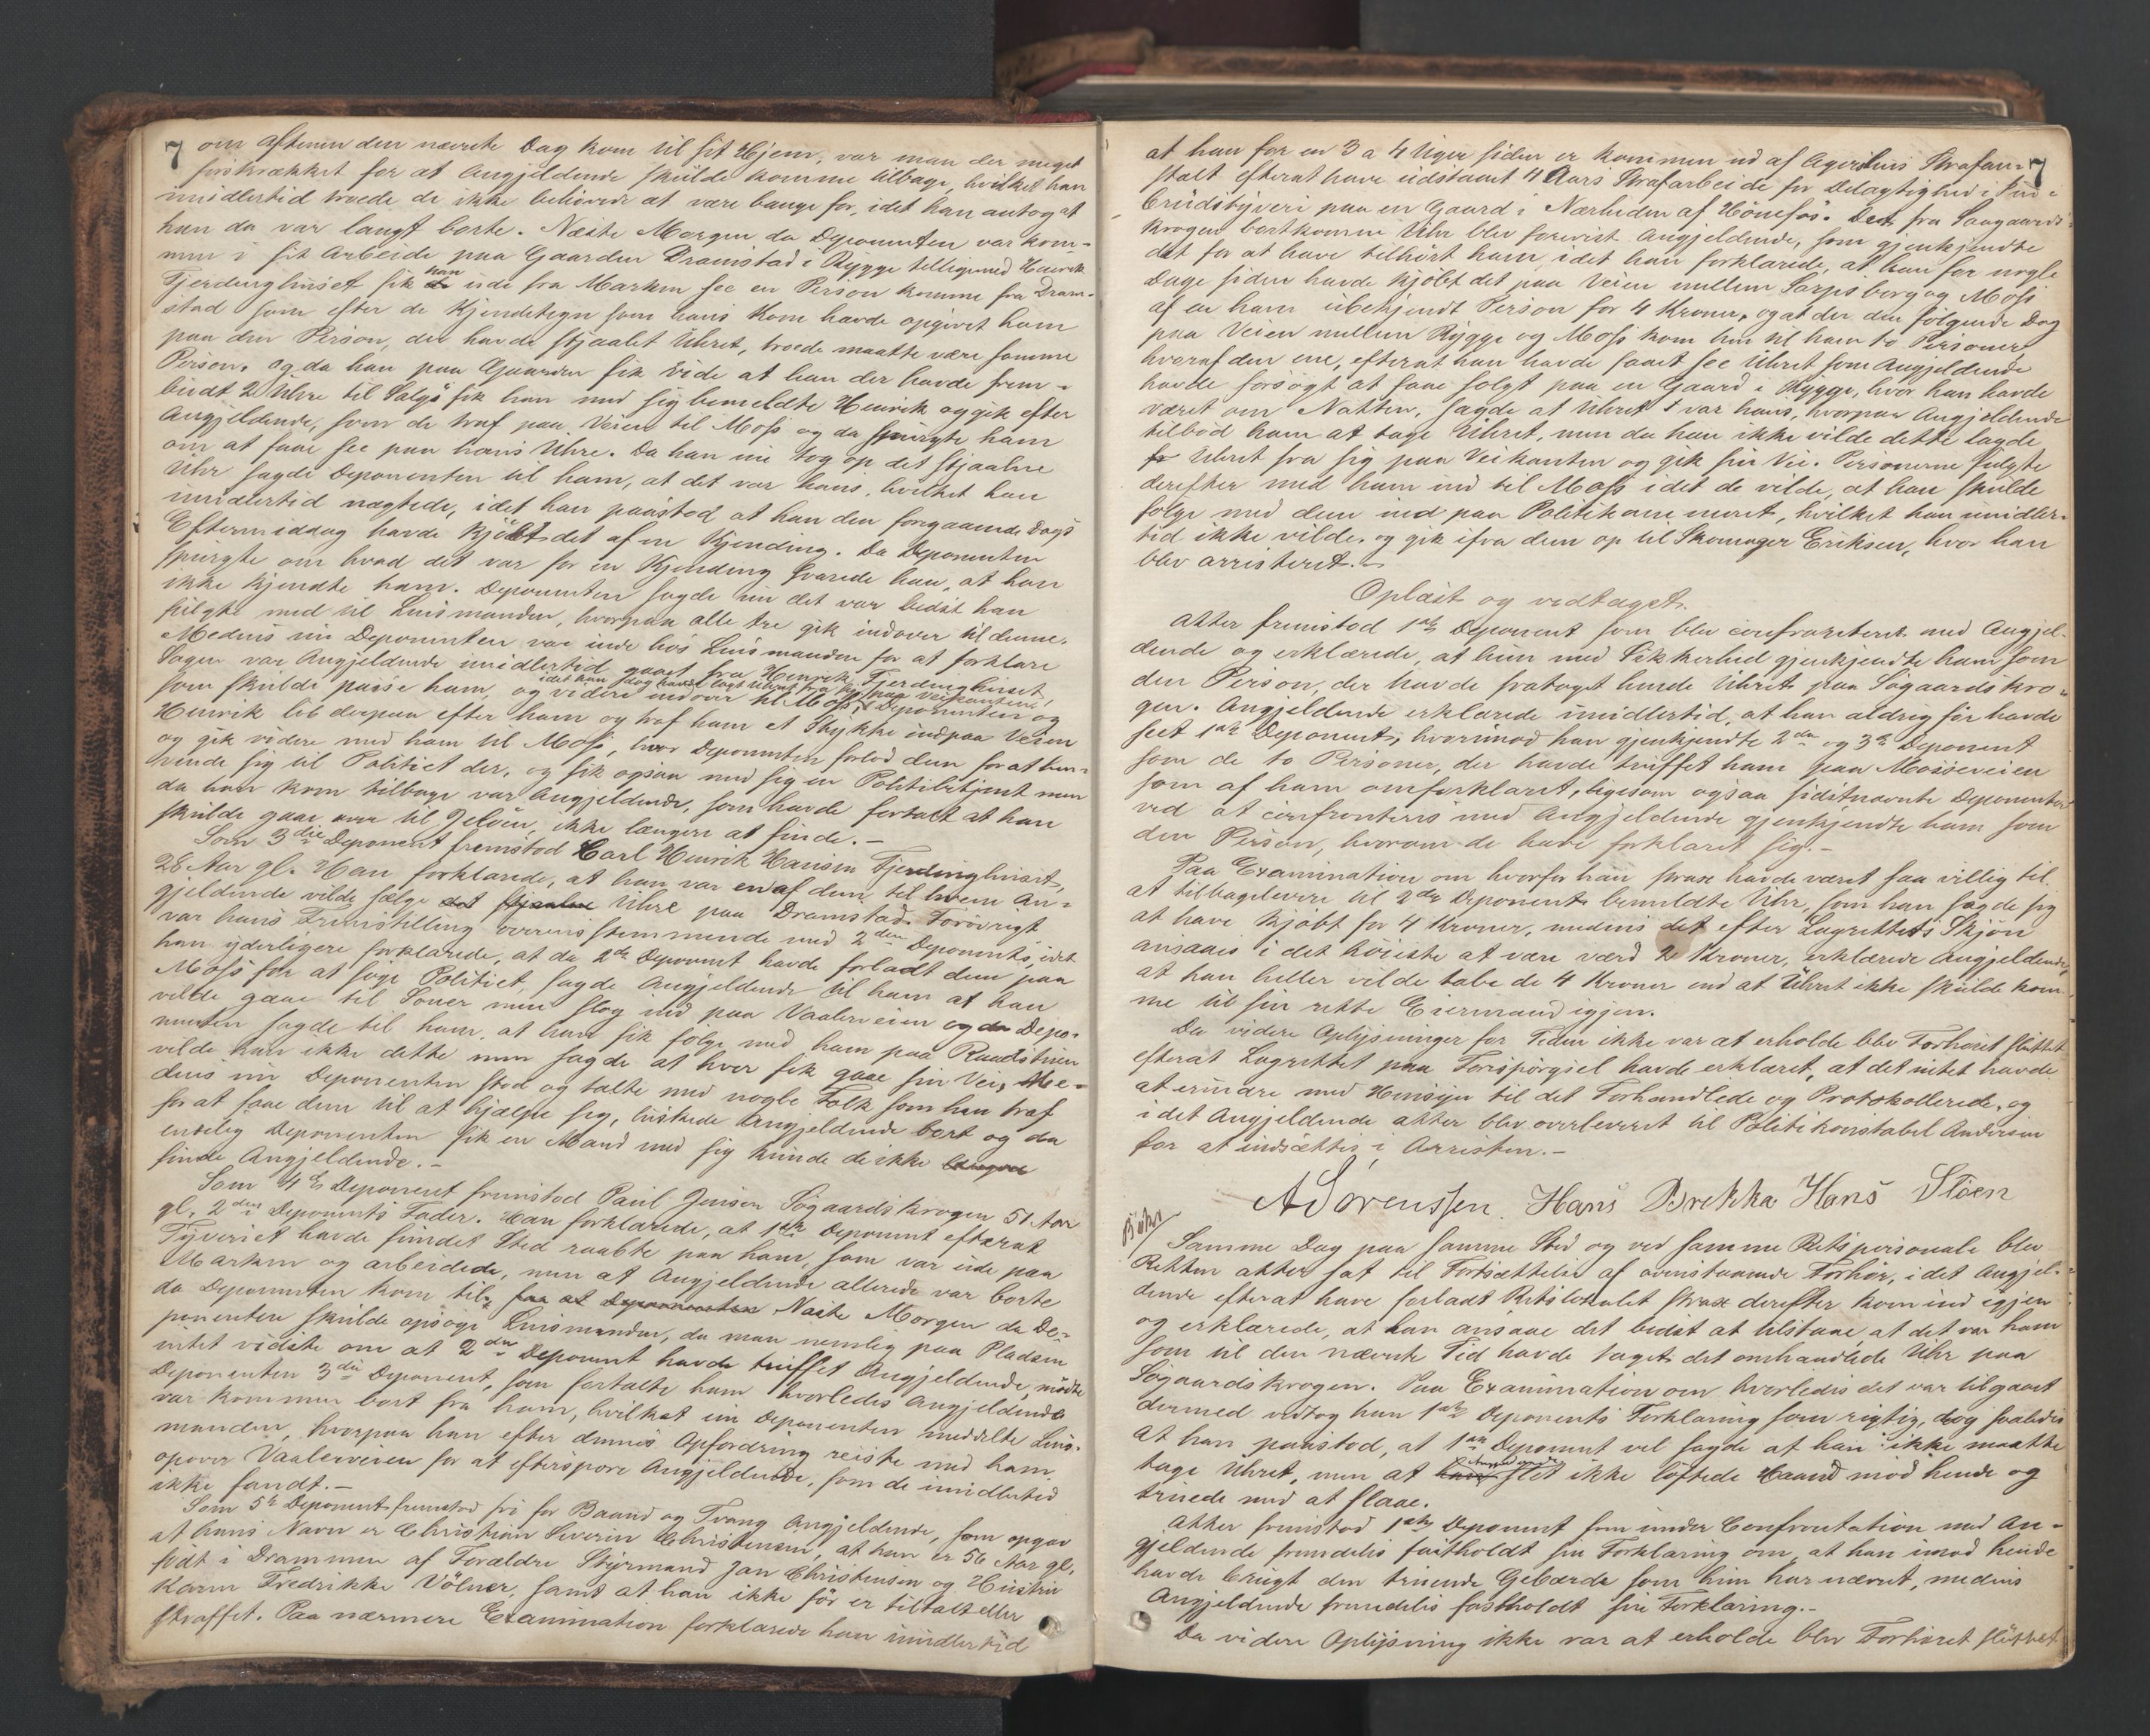 7
om Aftenen den nævnte Dag kom til sit Hjem, var man der meget
forskrækket for at Angjeldende skulde komme tilbage, hvilket han
imidlertid troede de ikke behøvede at være bange for, idet han antog at
han da var langt borte. Næste Morgen da Deponenten var kom-
men i sit Arbeide paa Gaarden Dramstad i Rygge tilligemed Henrik
Fjerdinghuset fik han ude fra Marken see en Person komme fra Dram-
stad som efter de Kjendetegn som hans Kone havde opgivet ham
paa den Person, der havde stjaalet Uhret, troede maatte være samme
Person. Og da han paa Gaarden fik vide at han der havde frem-
budt 2 Uhre til Salgs fik han med sig bemeldte Henrik og gik efter
Angjeldende, som de traf paa Veien til Moss og da spurgte ham
om at faae see paa hans Uhre. Da han nu tog op det stjaalne
Uhr sagde Deponenten til ham, at det var hans, hvilket han
imidlertid nægtede, idet han paastod at han den forgaaende Dags
Eftermiddag havde kjøbt det af en Kjending. Da Deponenten
spurgte om hvad det var for en Kjending svarede han, at han
ikke kjendte ham. Deponenten sagde nu det var bedst han
fulgte med til Lensmanden, hvorpaa alle tre gik indover til denne.
Medens nu Deponenten var inde hos Lensmanden for at forklare
Sagen var Angjeldende imidlertid gaaet fra Henrik Fjerdinghuset,
idet han dog havde lagt Uhret fra sig paa Veikanten,
som skulde passe ham, og videre indover til Moss. Deponenten og
Henrik løb derpaa efter ham og traf ham et Stykke indpaa Veien
og gik videre med ham til Moss, hvor Deponenten forlod dem for at hen-
vende sig til Politiet der, og fik ogsaa med sig en Politibetjent men
da han kom tilbage var Angjeldende, som havde fortalt at han
skulde gaae over til Jeløen, ikke længere at finde.-
Som 3die Deponent fremstod Carl Henrik Hansen Fjerdinghuset,
28 Aar gl. Han forklarede, at han var en af dem til hvem An-
gjeldende vilde sælge det stjaalne Uhre paa Dramstad. Forøvrigt
var hans Fremstilling overensstemmende med 2den Deponents, idet
han yderligere forklarede, at da 2de Deponent havde forladt dem paa
Moss for at søge Politiet, sagde Angjeldende til ham at han
vilde gaae til Soner men slog ind paa Vaalerveien og da Depo-
nenten sagde til ham, at han fik følge med ham paa Raadstuen
vilde han ikke dette men sagde at hver fik gaae sin Vei. Me-
dens nu Deponenten stod og talte med nogle Folk som han traf
for at faae dem til at hjælpe sig, luskede Angjeldende bort og da
endelig Deponenten fik en Mand med sig kunde de ikke længere
finde Angjeldende.-
Som 4de Deponent fremstod Paul Jensen Søgaardskrogen 51 Aar
gl, 2den Deponents Fader. Han forklarede, at 1ste Deponent efterat
Tyveriet havde fundet Sted raabte paa ham, som var ude paa
Marken og arbeidede, men at Angjeldende allerede var borte
da Deponenten kom til, saa at Deponenten Næste Morgen da De-
ponenten skulde opsøge Lensmanden, da man nemlig paa Pladsen
intet vidste om at 2den Deponent havde truffet Angjeldende, mødte
Deponenten 3die Deponent, som fortalte ham hvorledes Angjeldende
var kommen bort fra ham, hvilket nu Deponenten meddelte Lens-
manden, hvorpaa han efter dennes Opfordring reiste med ham
opover Vaalerveien for at efterspore Angjeldende, som de imidlertid
ikke fandt.-
Som 5te Deponent fremstod fri for Baand og Tvang Angjeldende, som opgav
at hans Navn er Christian Severin Christensen, at han er 56 Aar gl,
født i Drammen af Forældre Styrmand Jan Christensen og Hustru
Karen Fredrikke Völner, samt at han ikke før er tiltalt eller
straffet. Paa nærmere Examination forklarede han imidlertid
7
at han for en 3 a 4 Uger siden er kommen ud af Agershus Strafan-
stalt efterat have udstaaet 4 Aars Strafarbeide for Delagtighed i Ind-
brudstyveri paa en Gaard i Nærheden af Hönefos. Det fra Søgaards-
krogen bortkomne Uhr blev forevist Angjeldende, som gjenkjendte
det for at have tilhørt ham, idet han forklarede, at han for nogle
Dage siden havde kjøbt det paa Veien mellem Sarpsborg og Moss
af en ham ubekjendt Person for 4 Kroner, og at der den følgende Dag
paa Veien mellem Rygge og Moss kom hen til ham to Personer
hvoraf den ene, efterat han havde faaet see Uhret som Angjeldende
havde forsøgt at faae solgt paa en Gaard i Rygge, hvor han havde
været om Natten, sagde at Uhret var hans, hvorpaa Angjeldende
tilbød ham at tage Uhret, men da han ikke vilde dette lagde
Uhret fra sig paa Veikanten og gik sin Vei. Personerne fulgte
derefter med ham ind til Moss idet de vilde, at han skulde
følge med dem ind paa Politikammeret, hvilket han imidler-
tid ikke vilde, og gik ifra dem op til Skomager Eriksen, hvor han
blev arresteret.-
Oplæst og vedtaget.
Atter fremstod 1ste Deponent som blev confronteret med Angjel-
dende og erklærede, at hun med Sikkerhed gjenkjendte ham som
den Person, der havde frataget hende Uhret paa Søgaardskro-
gen. Angjeldende erklærede imidlertid, at han aldrig før havde
seet 1ste Deponent, hvorimod han gjenkjendte 2den og 3die Deponent
som de to Personer, der havde truffet ham paa Mosseveien
som af ham omforklaret, ligesom ogsaa sidstnævnte Deponenter
ved at confronteres med Angjeldende gjenkjendte ham som
den Person, hvorom de have forklaret sig.-
Paa Examination om hvorfor han strax havde været saa villig til
at tilbagelevere til 2den Deponent bemeldte Uhr, som han sagde sig
at have kjøbt for 4 Kroner, medens det efter Lagrettets Skjøn
ansaaes i det høieste at være værd 2 Kroner, erklærede Angjeldende,
at han heller vilde tabe de 4 Kroner end at Uhret ikke skulde kom-
me til sin rette Eiermand igjen.
Da videre Oplysninger for Tiden ikke var at erholde blev Forhøret sluttet
efterat Lagrettet paa Forespørgsel havde erklæret, at det intet havde
at erindre med Hensyn til det Forhandlede og Protokollerede, og
idet Angjeldende atter blev overleveret til Politikonstabel Andersen
for at indsættes i Arresten.-
A Sörenssen. Hans Brekka Hans Støen
Samme Dag paa samme Sted og ved samme Retspersonale blev
Retten atter sat til Fortsættelse af ovenstaaende Forhør, idet Angjel-
dende efterat have forladt Retslokalet strax derefter kom ind igjen
og erklærede, at han ansaae det bedst at tilstaae, at det var ham
som til den nævnte Tid havde taget det omhandlede Uhr paa
Søgaardskrogen. Paa Examination om hvorledes det var tilgaaet
dermed vedtog han 1ste Deponents Forklaring som rigtig, dog saaledes
at han paastod, at 1ste Deponent vel sagde at han ikke maatte
tage Uhret, men at Angjeldende slet ikke løftede Haand mod hende og
truede med at slaae.
Atter fremstod 1ste Deponent som under Confrontation med An-
gjeldende fremdeles fastholdt sin Forklaring om, at han imod hende
havde brugt den truende Gebærde som hun har nævnt, medens
Angjeldende fremdeles fastholdt sin Forklaring.-
Da videre Oplysning ikke var at erholde blev Forhøret sluttet